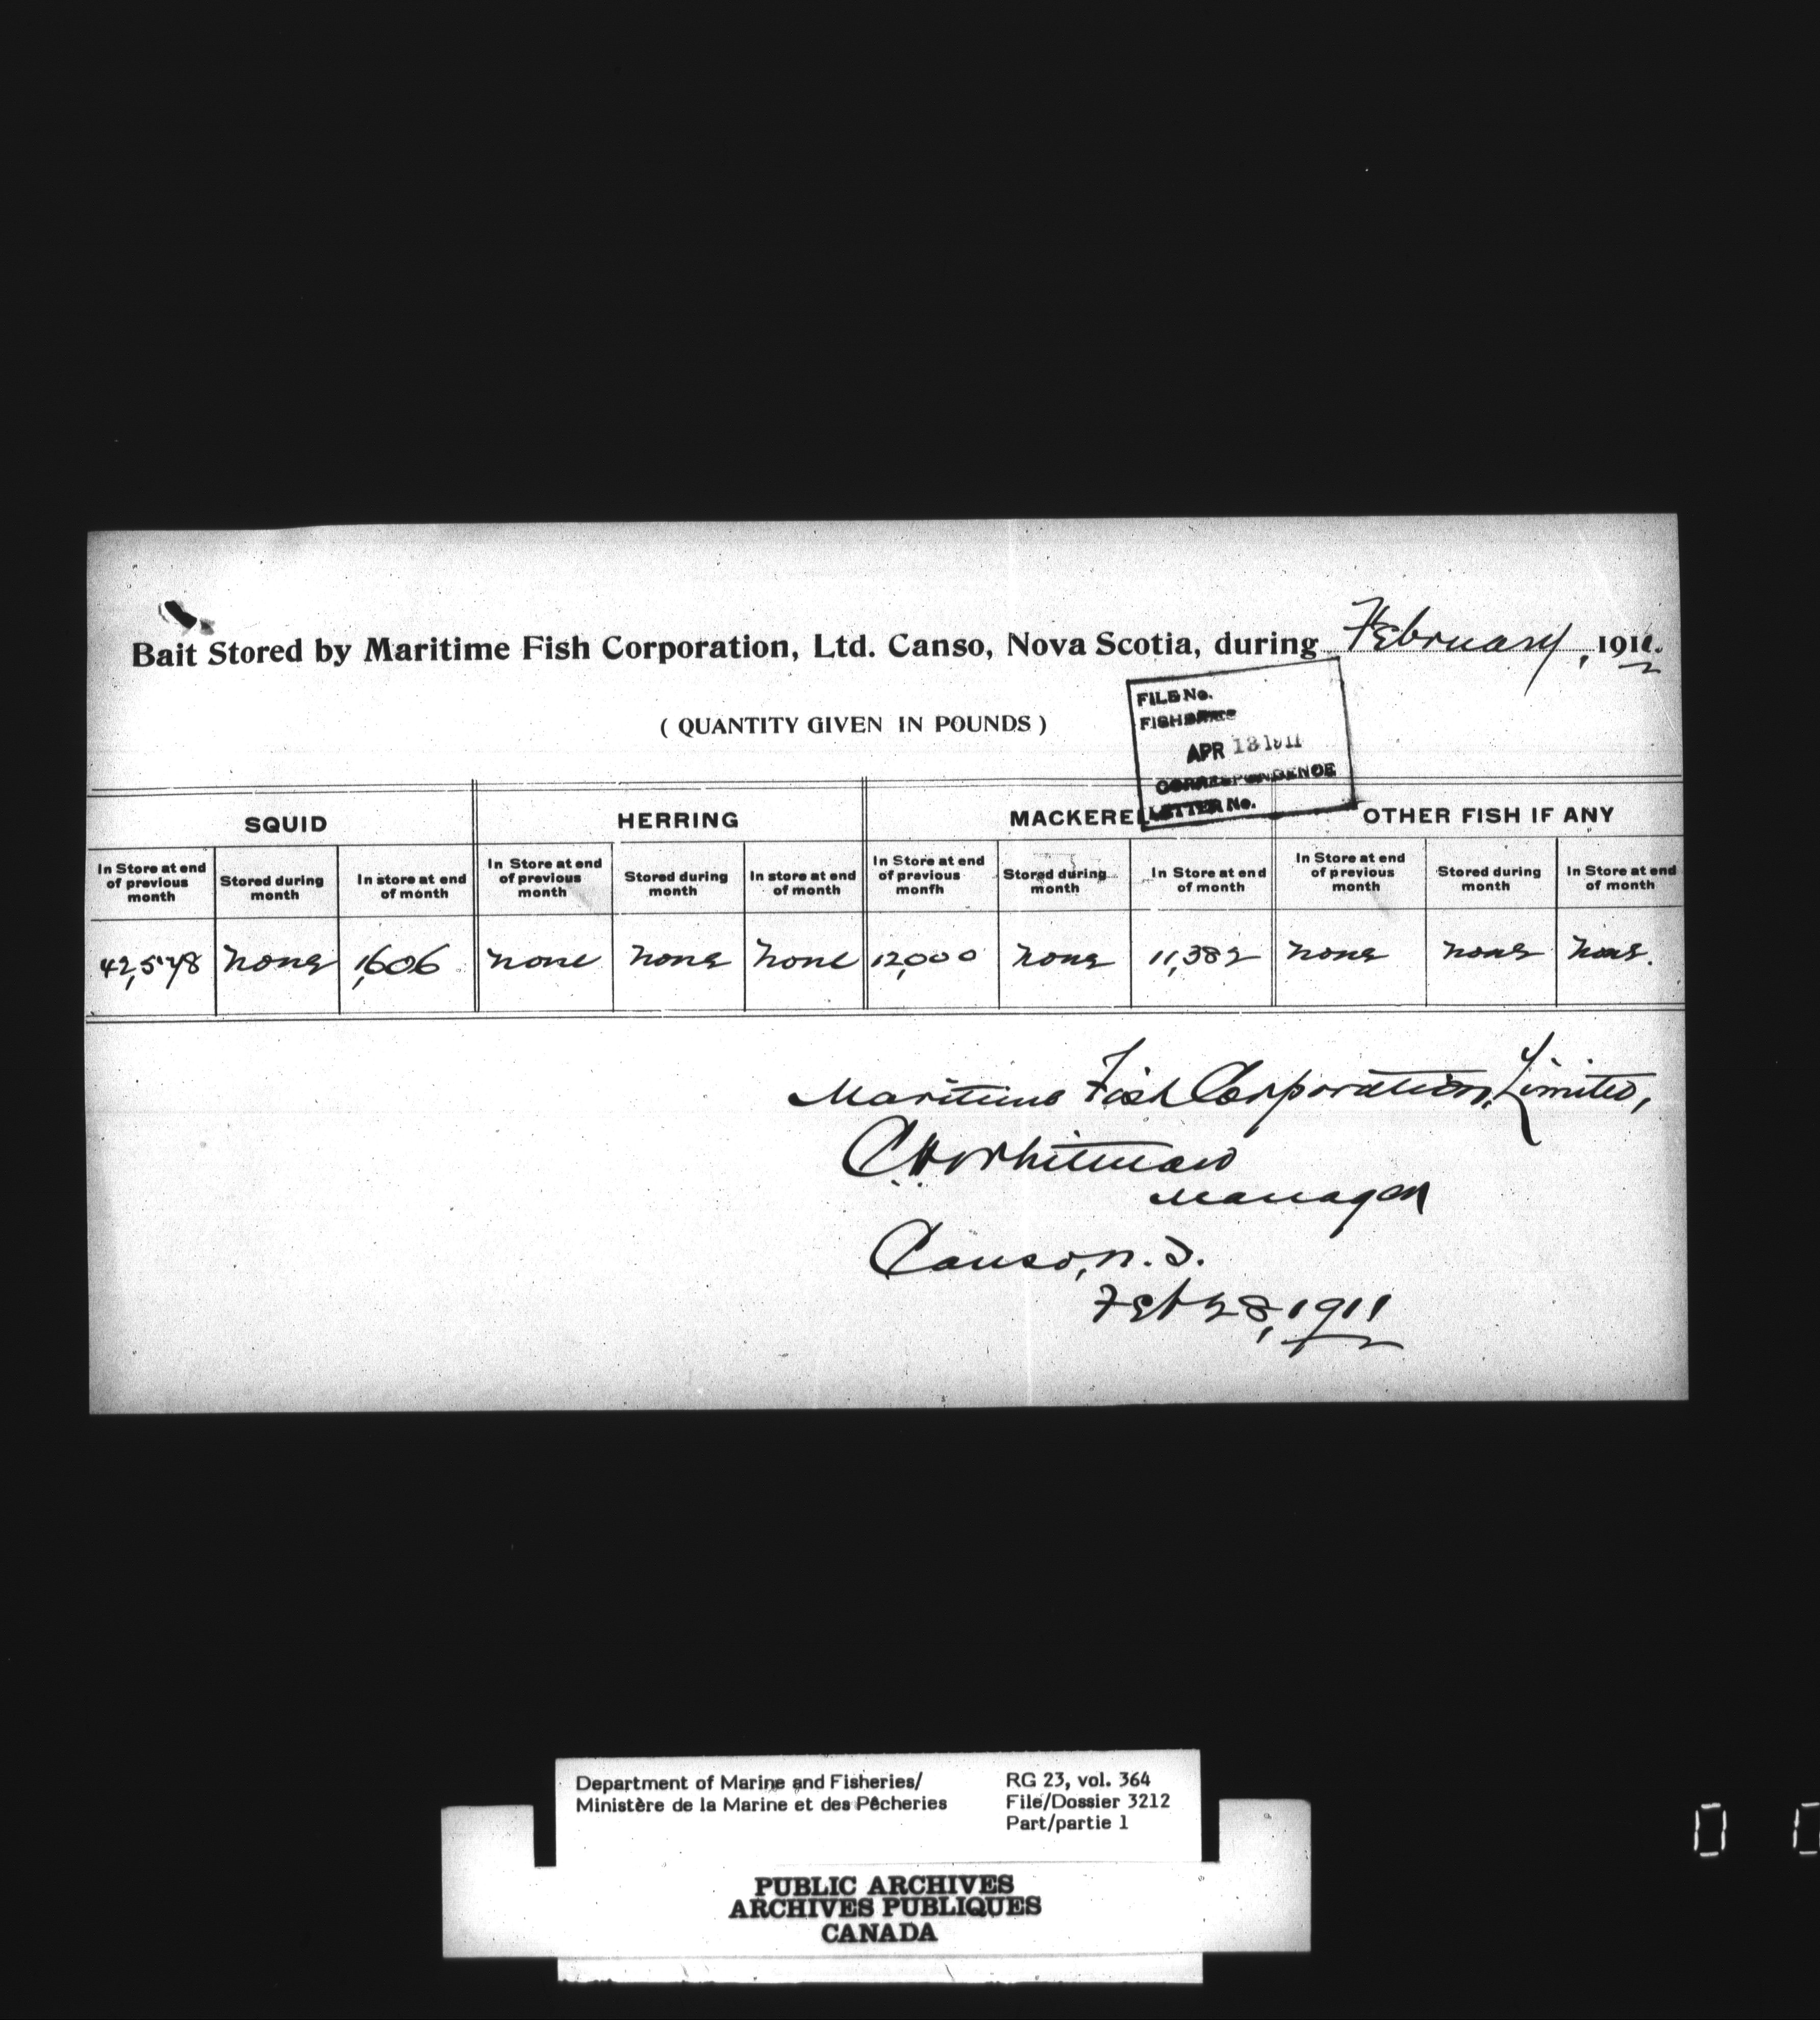 Bait Stored by Maritime Fish Corporation, Ltd. Canso, Nova Scotia, during February, 1911.
( QUANTITY GIVEN IN POUNDS )
FILE No.
FISHERIES
APR 13 1911
CORRESPONDENCE
LETTER No.
SQUID HERRING MACKEREL OTHER FISH IF ANY
In Store at end of previous month Stored during month In store at end of month In Store at end of previous month Stored during month In store at end of month In Store at end of previous monfh Stored during month In Store at end of month In Store at end of previous month Stored during month In Store at end of month
42,578 none 1,606 none none none 12,000 none 11,382 none none none.
Maritime Fish Corporation, Limited,
C.H. Whitman
Manager
Canso, N. S.
Feb 28, 1911
Department of Marine and Fisheries/
Ministère de la Marine et des Pêcheries
RG 23, vol. 364
File/Dossier 3212
Part/partie 1
PUBLIC ARCHIVES
ARCHIVES PUBLIQUES
CANADA
0